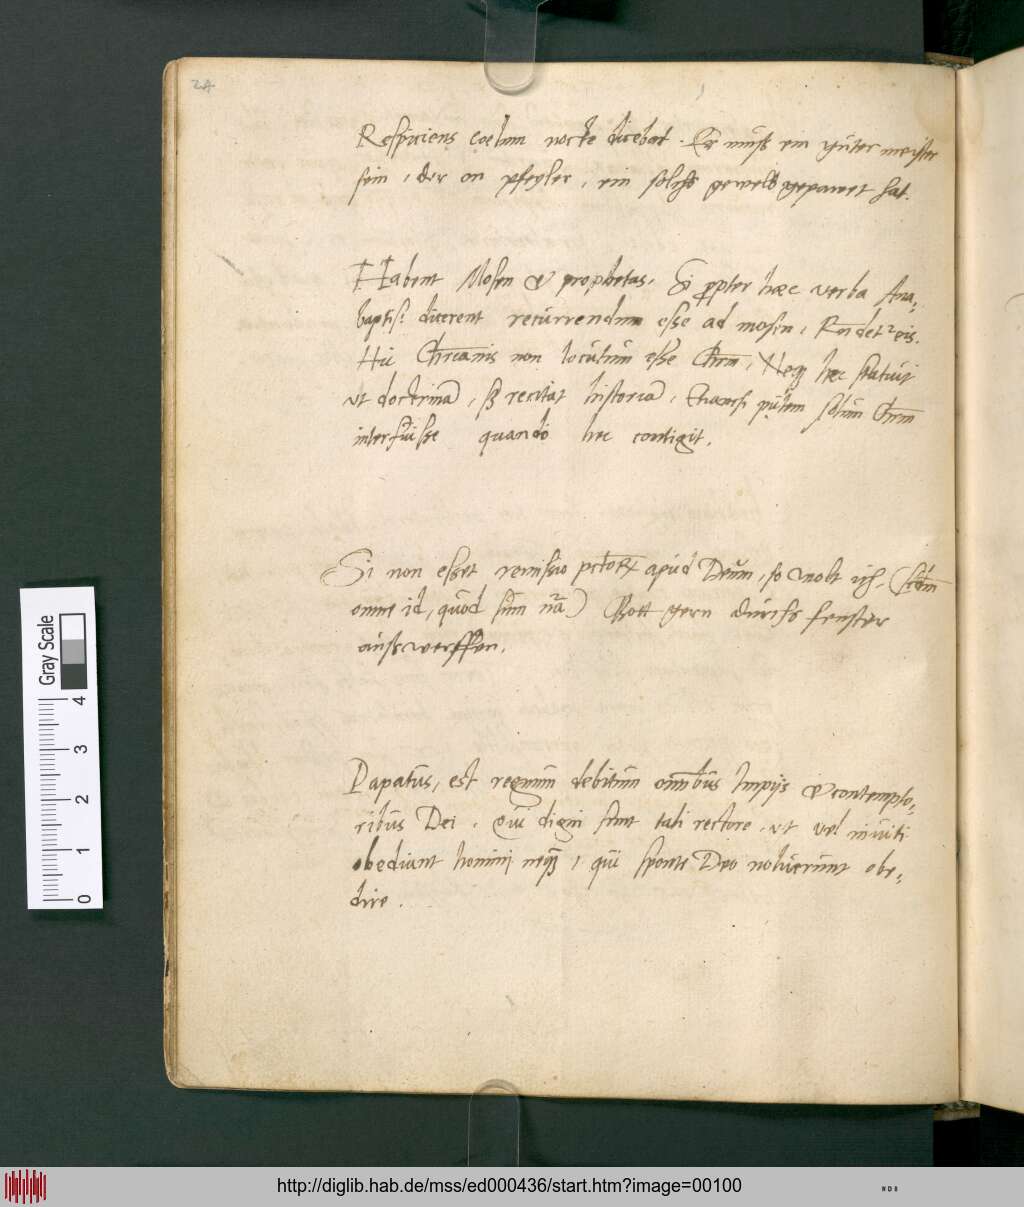 24
Respiciens coelum nocte dicebat. Er muͤß ein guͤter meister
sein, der on pfeyler, ein solchs geweld gepawet hat.
Habent Mosen & prophetas. Si propter hæc verba Ana-
baptisͤ dicerent recurrendum esse ad mosen, Rñdetˀ eis.
Hic Chrianis non locutum esse Chrm, Neqȝ hec statuit
ut doctrinā, sȝ recitat historiā, putem solum Chrm
interfuisse quando hec contigit.
Si non esset remissio pctorꝝ apud Deum, so wolt ich, (scdm
omne id, quod sum nr̄a) Gott gern durchs fenster
außwerffen.
Papatus, est regnum debitum omnibus Impijs & contempto-
ribus Dei. Qui digni sunt tali rectore, ut vel inuiti
obediant homini neqȝ, qui sponte Deo noluerunt obe-
dire.
Gray Scale
0 1 2 3 4
http://diglib.hab.de/mss/ed000436/start.htm?image=00100